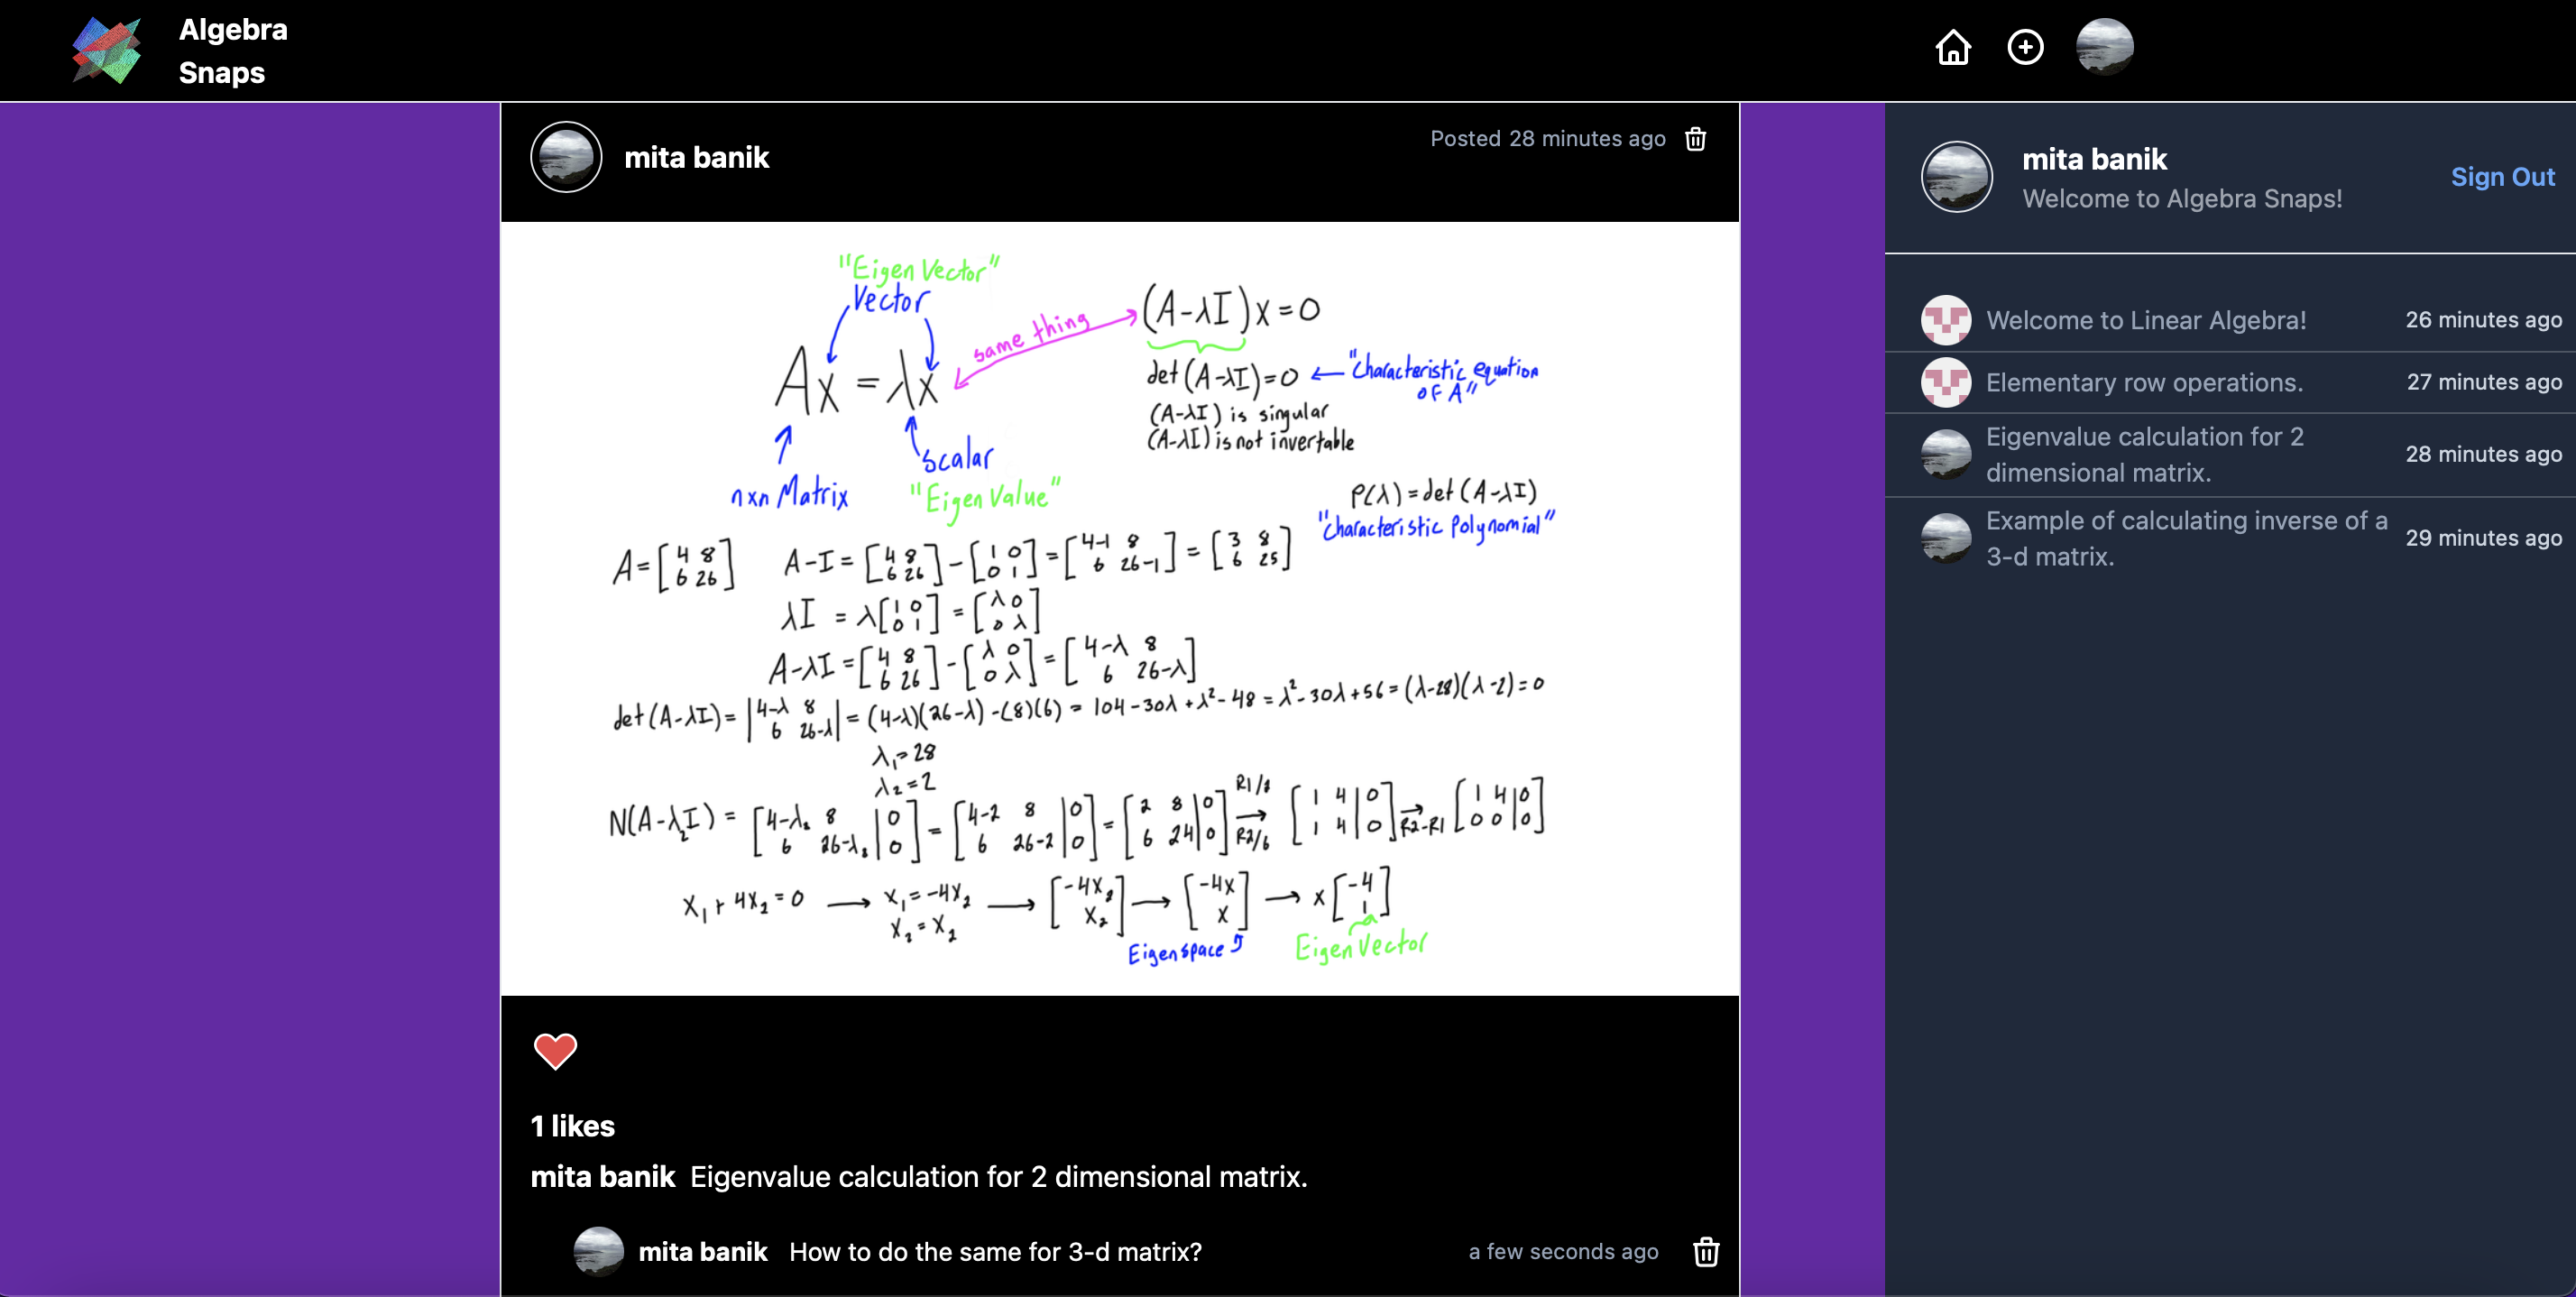 Algebra
Snaps
mita banik
Posted 28 minutes ago
"Eigen Vector"
Vector
Ax = λx
same thing
(A-λI)x=0
det(A-λI)=0 ← "Characteristic equation
OF A"
(A-λI) is singular
(A-λI) is not invertable
scalar
"Eigen Value"
nxn Matrix
P(λ)=det(A-λI)
"Characteristic Polynomial"
A=[4 8; 6 26] A-I=[4 8; 6 26]-[1 0; 0 1]=[4-1 8; 6 26-1]=[3 8; 6 25]
λI = λ[1 0; 0 1]=[λ 0; 0 λ]
A-λI=[4 8; 6 26]-[λ 0; 0 λ]=[4-λ 8; 6 26-λ]
det(A-λI)=|4-λ 8; 6 26-λ|=(4-λ)(26-λ)-(8)(6)=104-30λ+λ²-48=λ²-30λ+56=(λ-28)(λ-2)=0
λ₁=28
λ₂=2
N(A-λ₂I)=[4-λ₂ 8|0; 6 26-λ₂|0]=[4-2 8|0; 6 26-2|0]=[2 8|0; 6 24|0] R1/2 → R2/6 [1 4|0; 1 4|0] → R2-R1 [1 4|0; 0 0|0]
x₁+4x₂=0 → x₁=-4x₂ x₂=x₂ → [-4x₂; x₂] → [-4x; x] → x[-4; 1]
Eigenspace
Eigen Vector
1 likes
mita banik Eigenvalue calculation for 2 dimensional matrix.
mita banik How to do the same for 3-d matrix? a few seconds ago
mita banik
Welcome to Algebra Snaps!
Sign Out
Welcome to Linear Algebra! 26 minutes ago
Elementary row operations. 27 minutes ago
Eigenvalue calculation for 2
dimensional matrix.
28 minutes ago
Example of calculating inverse of a
3-d matrix.
29 minutes ago